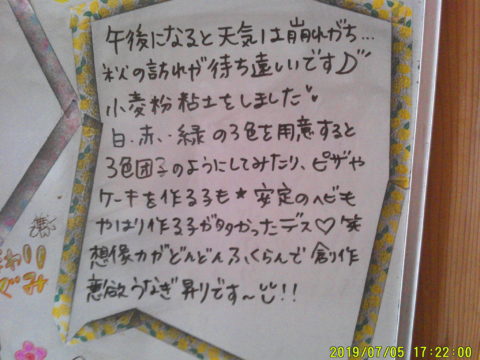 午後になると天気は崩れがち…
秋の訪れが待ち遠しいです
小麦粉粘土をしました
白・赤・緑の3色を用意すると
3色団子のようにしてみたり、ピザや
ケーキを作る子も★安定のヘビも
やはり作る子が多かったデス♡笑
想像力がどんどんふくらんで創作
意欲うなぎ昇りです〜!!
まわり
ぐみ
2019/07/05 17:22:00